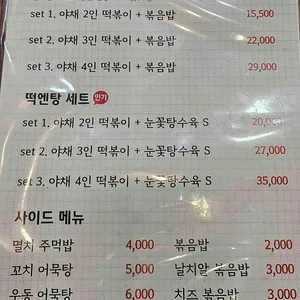 set 1. 야채 2인 떡볶이 + 볶음밥 15,500
set 2. 야채 3인 떡볶이 + 볶음밥 22,000
set 3. 야채 4인 떡볶이 + 볶음밥 29,000
떡엔탕 세트 인기
set 1. 야채 2인 떡볶이 + 눈꽃탕수육 S 20,000
set 2. 야채 3인 떡볶이 + 눈꽃탕수육 S 27,000
set 3. 야채 4인 떡볶이 + 눈꽃탕수육 S 35,000
사이드 메뉴
멸치 주먹밥 4,000 볶음밥 2,000
꼬치 어묵탕 5,000 날치알 볶음밥 3,000
우동 어묵탕 6,000 치즈 볶음밥 3,000